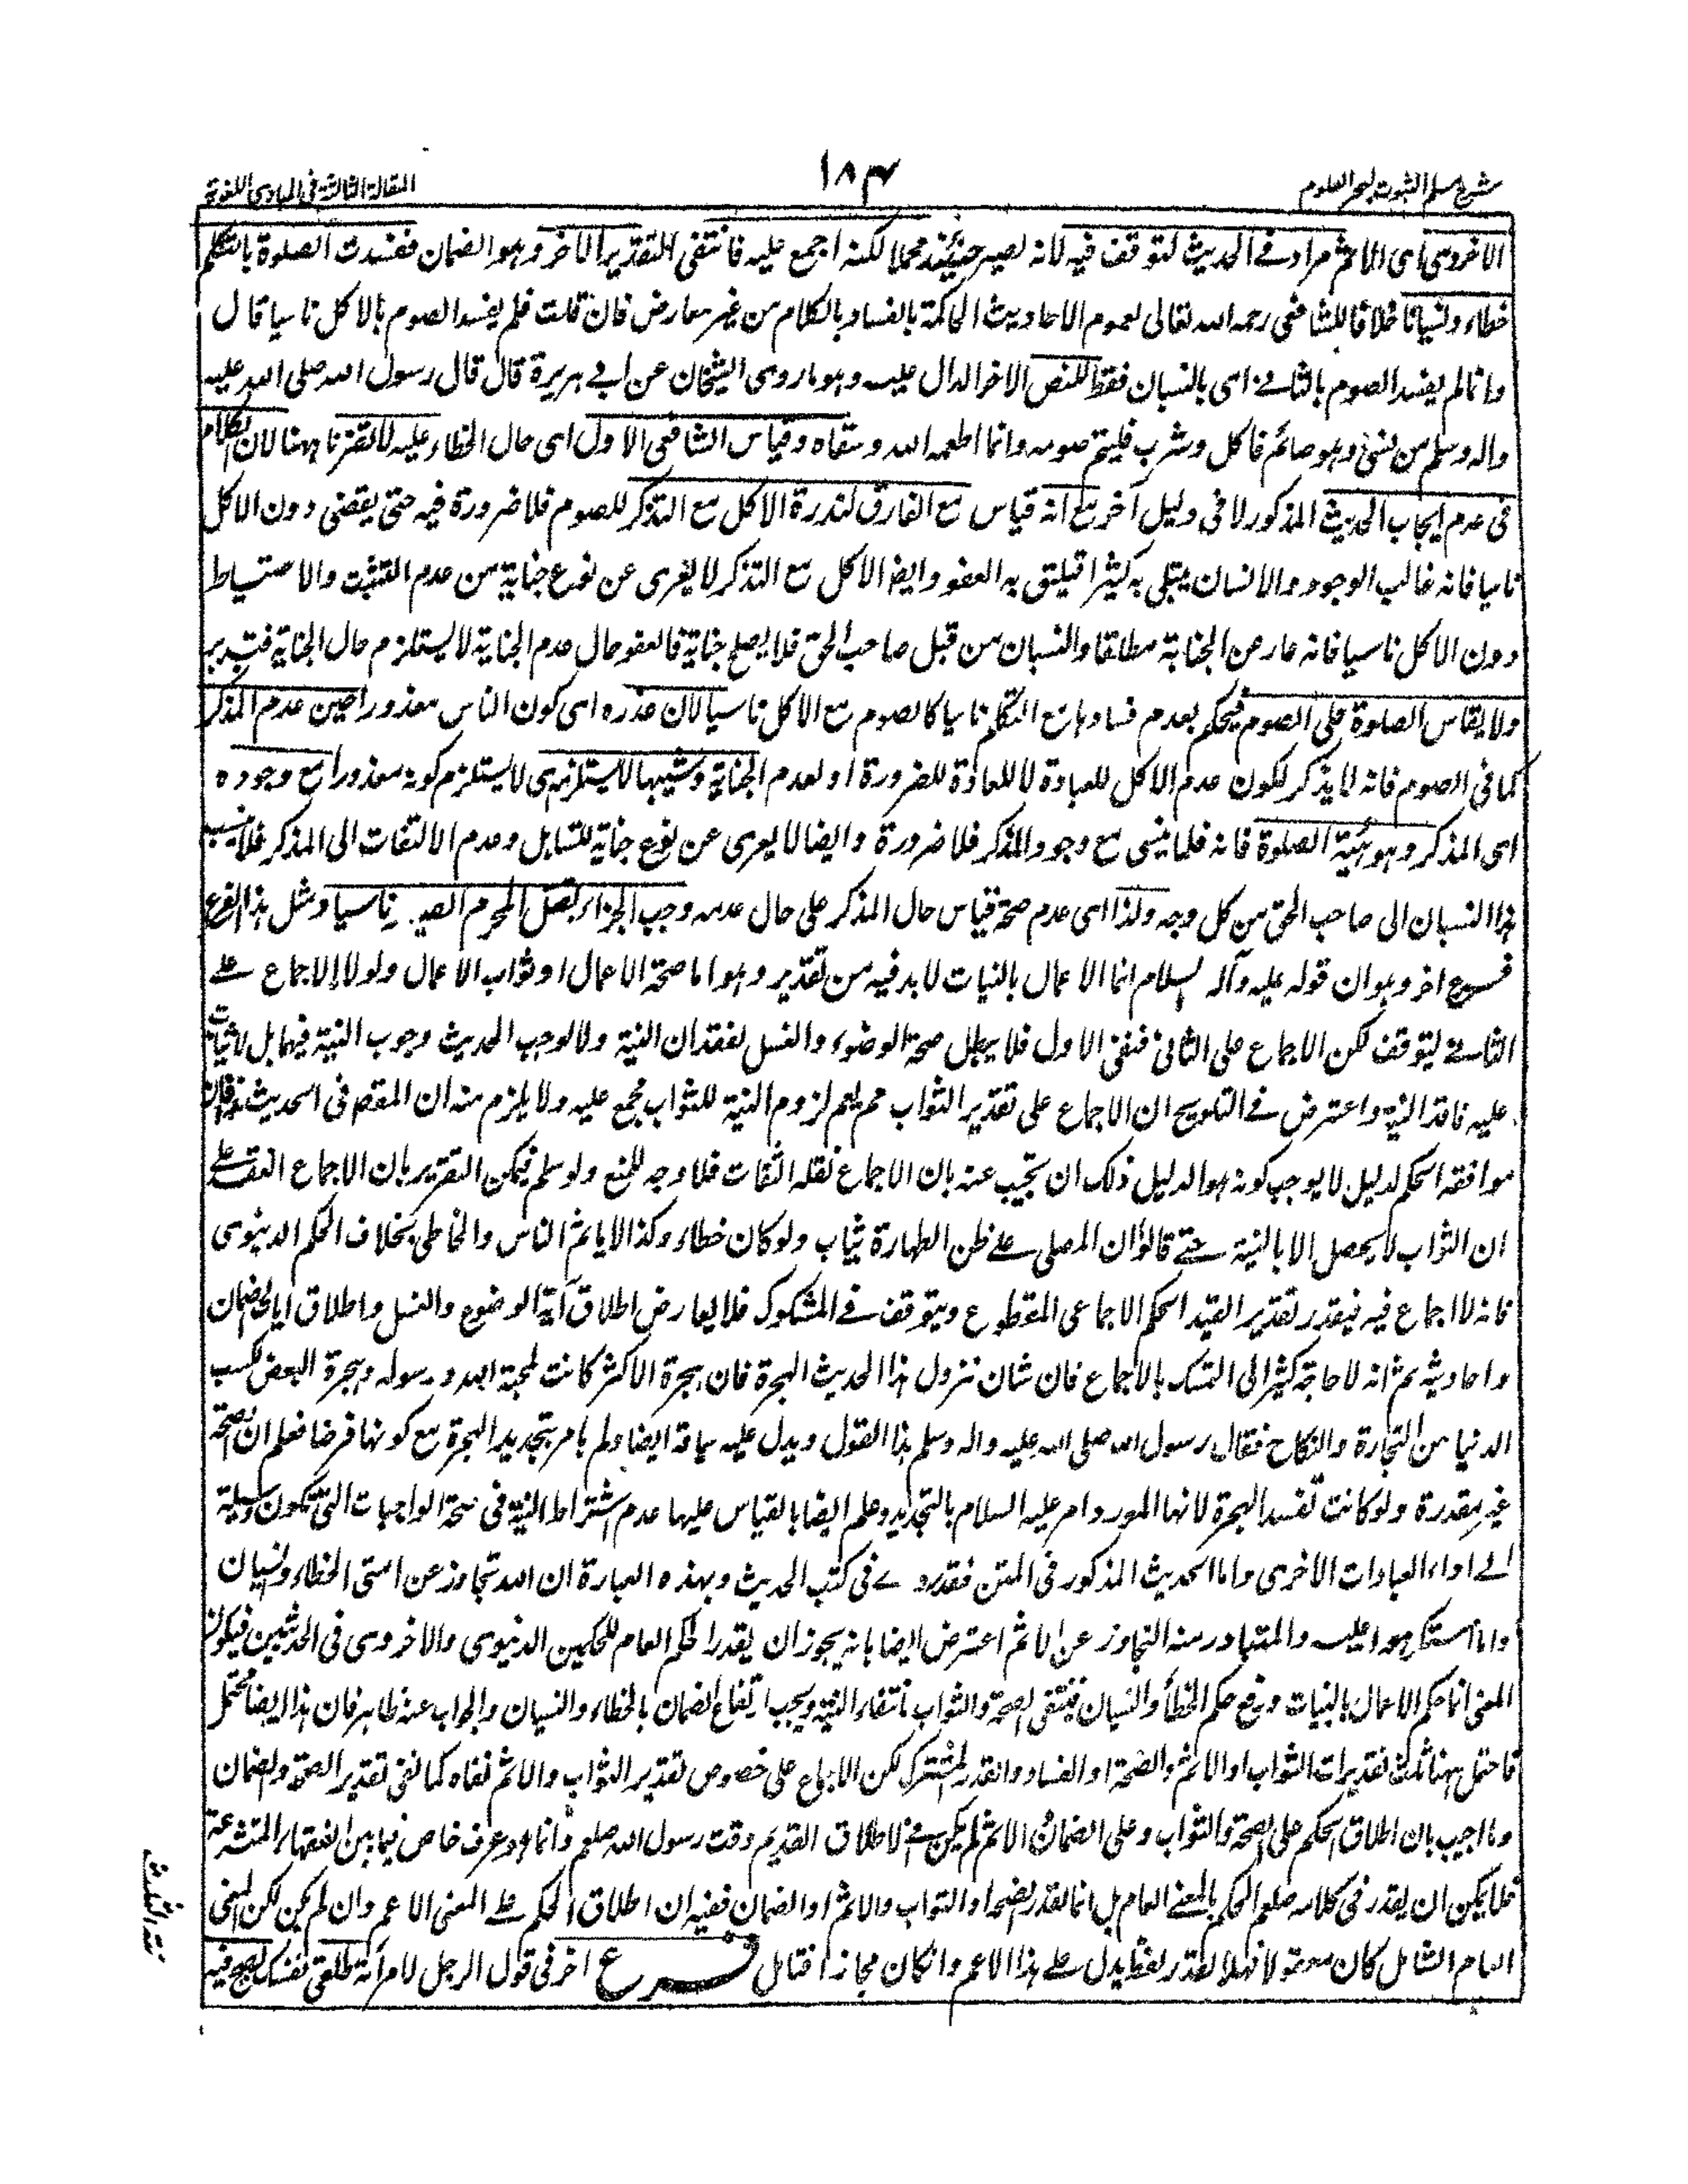 شرح مسلم الثبوت لبحر العلوم
١٨٤
المقالة الثالثة في المبادي اللغوية
الاخروي اى الاثم مراد فے الحديث لتوقف فيه لانه يصير حينئذ مجملا لكنه اجمع عليه فانتفى التقدير الآخر وهو الضمان ففسدت الصلوة بالتكلم
خطاء ونسيانا خلافا للشافعى رحمه الله تعالى لعموم الاحاديث الحاكمة بالفساد بالكلام من غير معارض فان قلت فلم يفسد الصوم بالاكل ناسيا قال
وانما لم يفسد الصوم بالثانے اى بالنسيان فقط للنص الاخر الدال عليه وهو ما روى الشيخان عن ابے هريرة قال قال رسول الله صلى الله عليه
واله وسلم من نسى وهو صائم فاكل وشرب فليتم صومه وانما اطعمه الله وسقاه وقياس الشافعى الاول اى حال الخطاء عليه لا تقرنا ههنا لان الكلام
فى عدم ايجاب الحديث المذكور لا فى دليل آخر مع انه قياس مع الفارق لندرة الاكل مع التذكر للصوم فلا ضرورة فيه حتى يقضى دون الاكل
ناسيا فانه غالب الوجود والانسان يبتلى به كثيرا فيليق به العفو وايضا الاكل مع التذكر لا يعرى عن نوع جناية من عدم التثبت والاحتياط
دون الاكل ناسيا فانه عار عن الجناية مطلقا والنسيان من قبل صاحب الحق فلا يصلح جناية فالعفو حال عدم الجناية لا يستلزم حال الجناية فتدبر
ولا يقاس الصلوة على الصوم فيحكم بعدم فسادها مع التكلم ناسيا كالصوم مع الاكل ناسيا لان عذره اى كون الناس معذورا حين عدم المذكر
كما فى الصوم فانه لا يذكر لكون عدم الاكل للعبادة لا للعادة للضرورة او لعدم الجناية وشبهها لا يستلزمه اى لا يستلزم كونه معذورا مع وجوده
اى المذكر وهو هيئة الصلوة فانه قلما ينسى مع وجود المذكر فلا ضرورة وايضا لا يعرى عن نوع جناية للتساهل وعدم الالتفات الى المذكر فلا ينسب
هذا النسيان الى صاحب الحق من كل وجه ولذا اى عدم صحة قياس حال المذكر على حال عدمه وجب الجزاء بقتل المحرم الصيد ناسيا ومثل هذا الفرع
فرع اخر وهو ان قوله عليه وآله السلام انما الاعمال بالنيات لا بد فيه من تقدير وهو اما صحة الاعمال او ثواب الاعمال ولولا الاجماع علے
الثانے ليتوقف لكن الاجماع على الثانى فنفى الاول فلا يبطل صحة الوضوء والغسل لفقدان النية ولا يوجب الحديث وجوب النية فيهما بل لا يثاب
عليه فاقد النية واعترض فے التلويح ان الاجماع على تقدير الثواب مم نعم لزوم النية للثواب مجمع عليه ولا يلزم منه ان المقصود فى الحديث هو فان
موافقة الحكم لدليل لا يوجب كونه هو الدليل ذلك ان تجيب عنه بان الاجماع نقله الثقات فلا وجه للمنع ولو سلم فيمكن التقرير بان الاجماع انعقد علے
ان الثواب لا يحصل الا بالنية حتے قالوا ان المصلى علے ظن الطهارة يثاب ولو كان خطاء وكذا لا ياثم الناس والخاطى بخلاف الحكم الدنيوى
فانه لا اجماع فيه فيقدر تقدير القيد الحكم الاجماعى المقطوع ويتوقف فے المشكوك فلا يعارض اطلاق آية الوضوء والغسل واطلاق ايات الضمان
واحاديثه ثم انه لا حاجة كثيرا الى التمسك بالاجماع فان شان نزول هذا الحديث الهجرة فان هجرة الاكثر كانت لمحبة الله ورسوله وهجرة البعض لكسب
الدنيا من التجارة والنكاح فقال رسول الله صلى الله عليه واله وسلم هذا القول ويدل عليه سياقه ايضا ولم يامر بتجديد الهجرة مع كونها فرضا فعلم ان الصحة
غير مقدرة ولو كانت تفسد الهجرة لانها المورد وامر عليه السلام بالتجديد وعلم ايضا بالقياس عليها عدم اشتراط النية فى صحة الواجبات التى تكون وسيلة
الے اداء العبادات الاخرى واما الحديث المذكور فى المتن فقد روے فى كتب الحديث وبهذه العبارة ان الله تجاوز عن امتى الخطاء والنسيان
وما استكرهوا عليه والمتبادر منه التجاوز عن الاثم ثم اعترض ايضا بانه يجوز ان يقدر الحكم العام للحكمين الدنيوى والاخروى فى الحديثين فيكون
المعنى انما حكم الاعمال بالنيات ورفع حكم الخطأ والنسيان فينتفى الصحة والثواب بانتفاء النية ويجب ارتفاع الضمان بالخطاء والنسيان والجواب عنه ظاهر فان هذا ايضا محتمل
فاحتمل ههنا ثلاث تقديرات الثواب او الاثم والصحة او الفساد والقدر المشترك لكن الاجماع على خصوص تقدير الثواب والاثم نفاه كما نفى تقدير الصحة والضمان
وما اجيب بان اطلاق الحكم على الصحة والثواب وعلى الضمان الاثم لم يكن فے الاطلاق القديم وقت رسول الله صلعم وانما هو عرف خاص فيما بين الفقهاء المتشرعة
فلا يمكن ان يقدر فى كلامه صلعم الحكم بالمعنے العام بل انما تقدر الصحة او الثواب والاثم او الضمان ففيه ان اطلاق الحكم علے المعنى الاعم وان لم يكن لكن المعنى
العام الشامل كان معقولا فهلا يقدر لفظ يدل علے هذا الاعم وان كان مجازا فتامل فرع اخر فى قول الرجل لامرأته طلقى نفسك يصح فيه